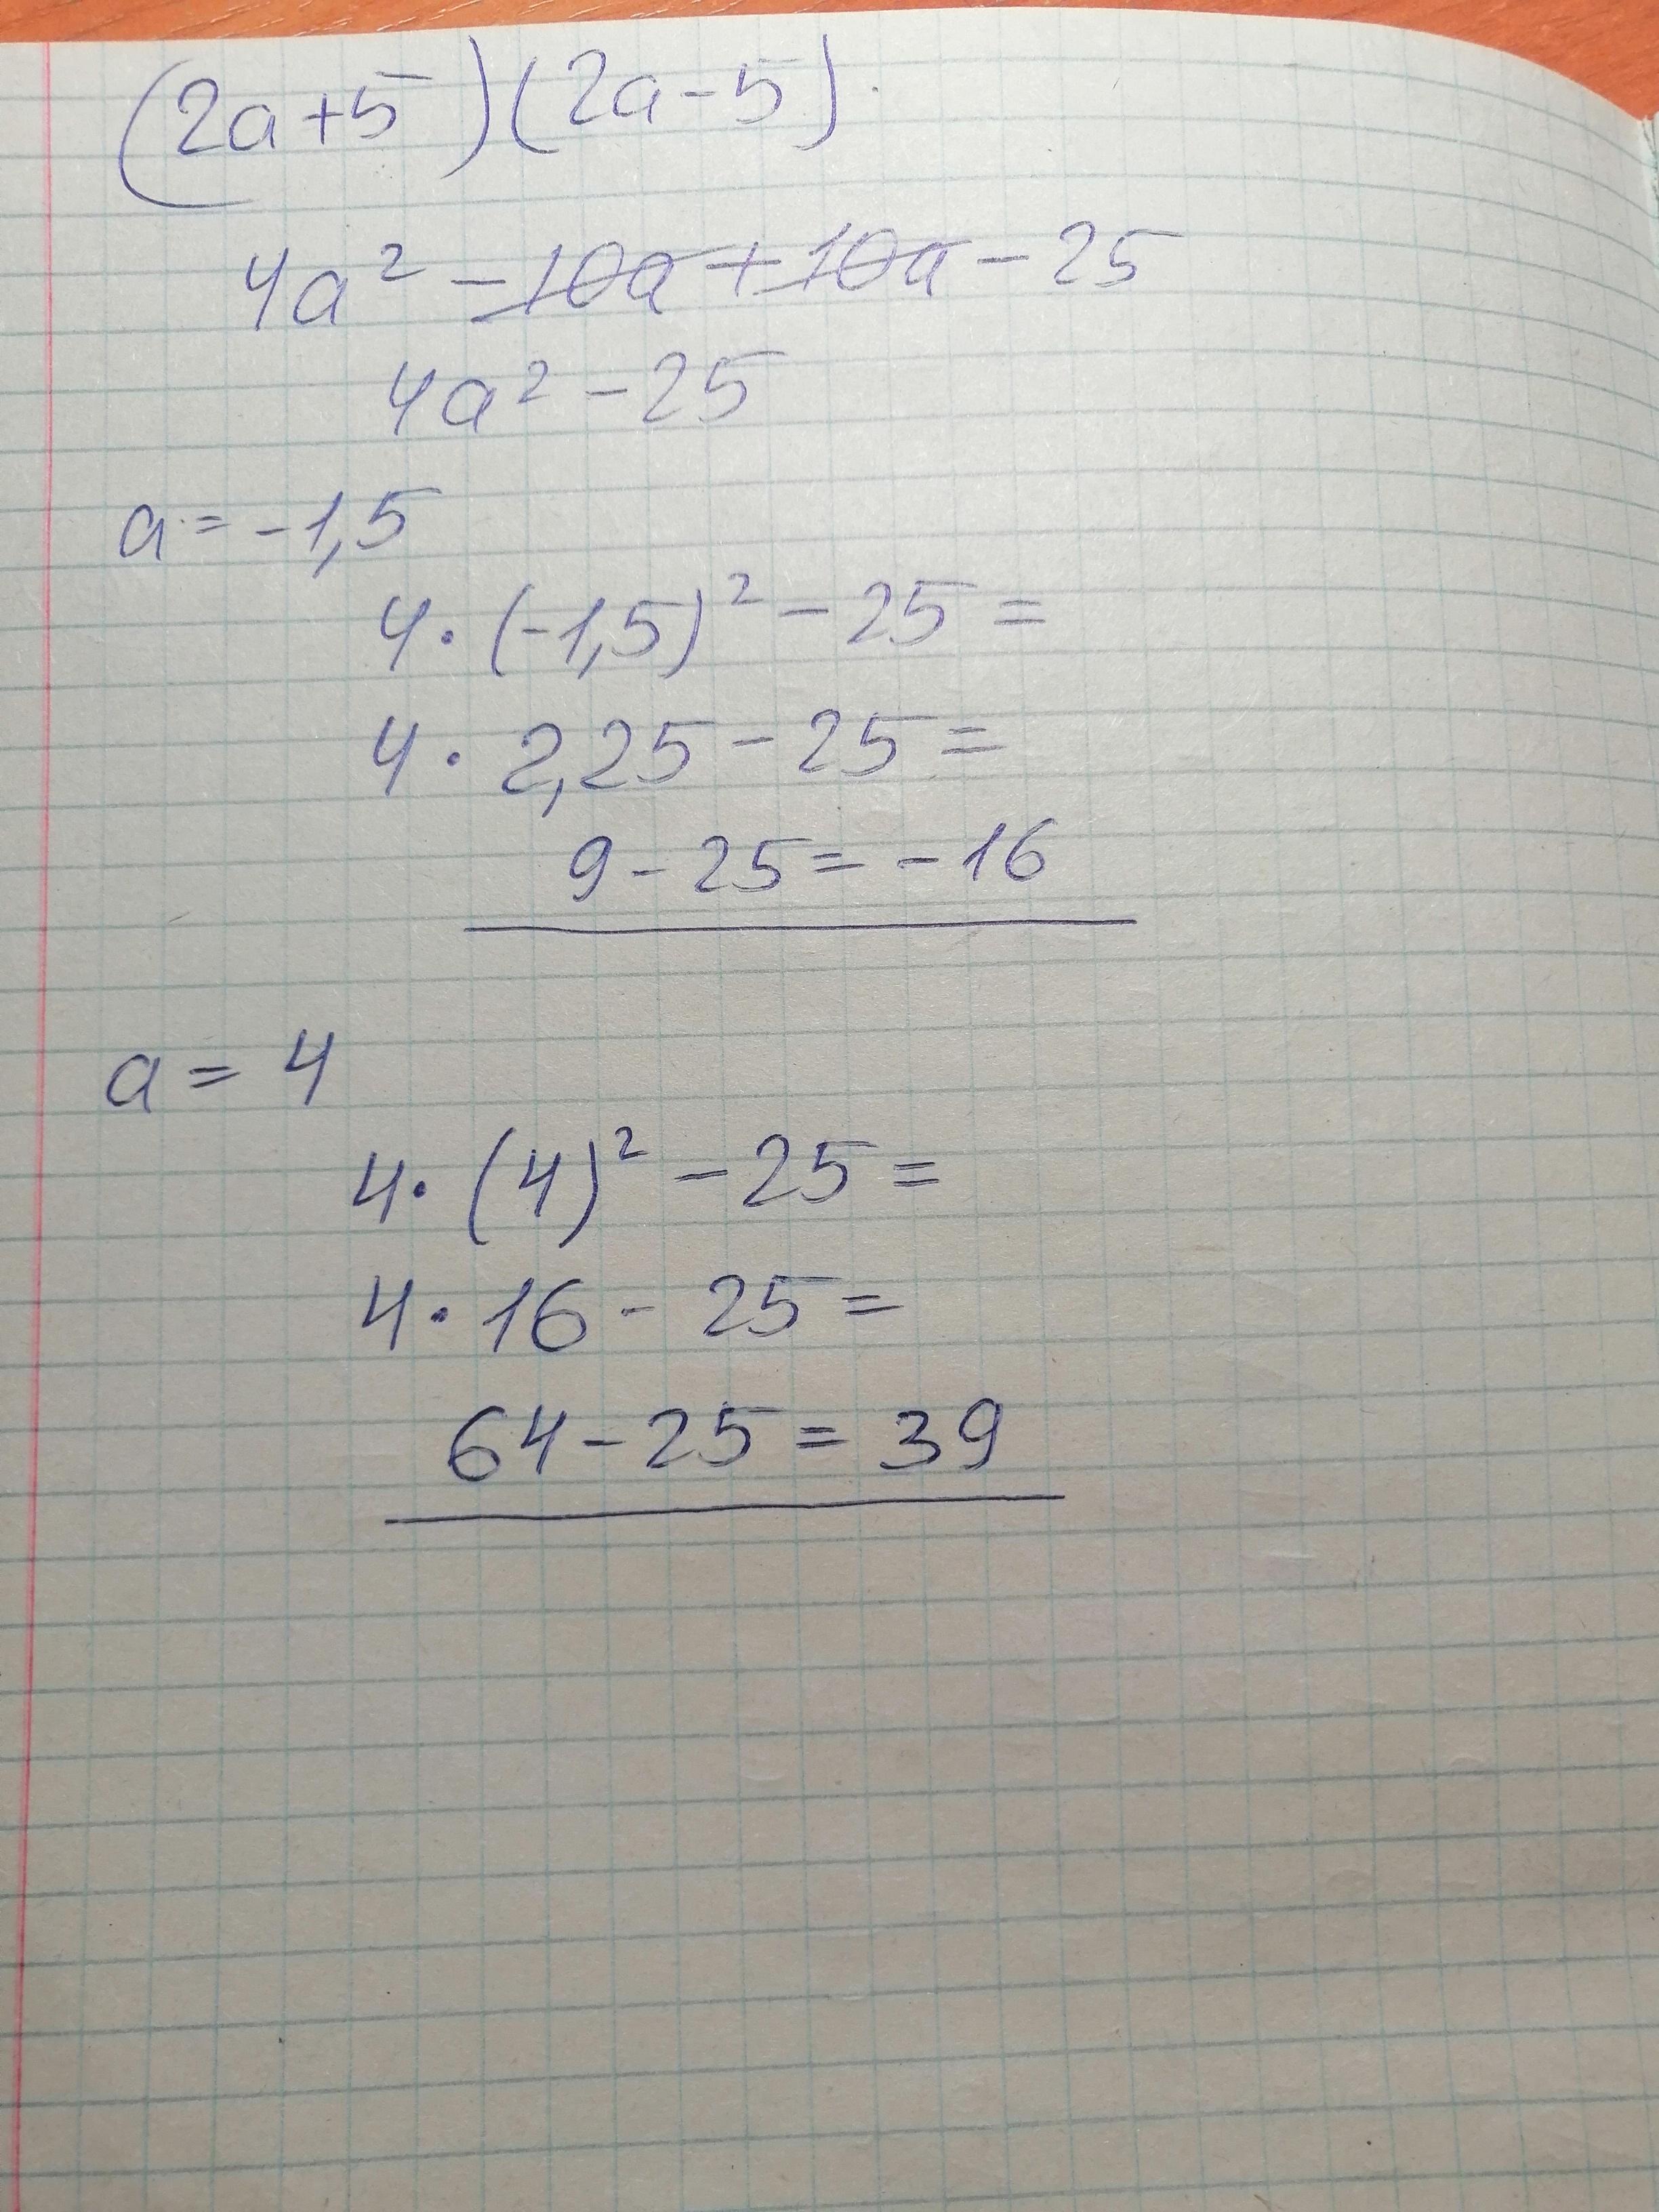 (2a+5)(2a-5)
4a² - 10a + 10a - 25
4a² - 25
a = -1,5
4 · (-1,5)² - 25 =
4 · 2,25 - 25 =
9 - 25 = -16
a = 4
4 · (4)² - 25 =
4 · 16 - 25 =
64 - 25 = 39